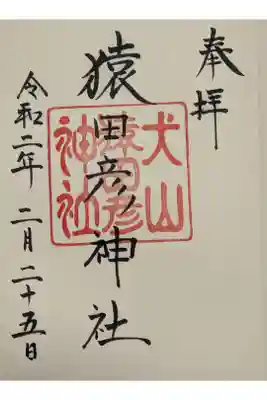 奉拝
猿田彦神社
犬山
猿田彦
神社
令和二年 二月二十五日